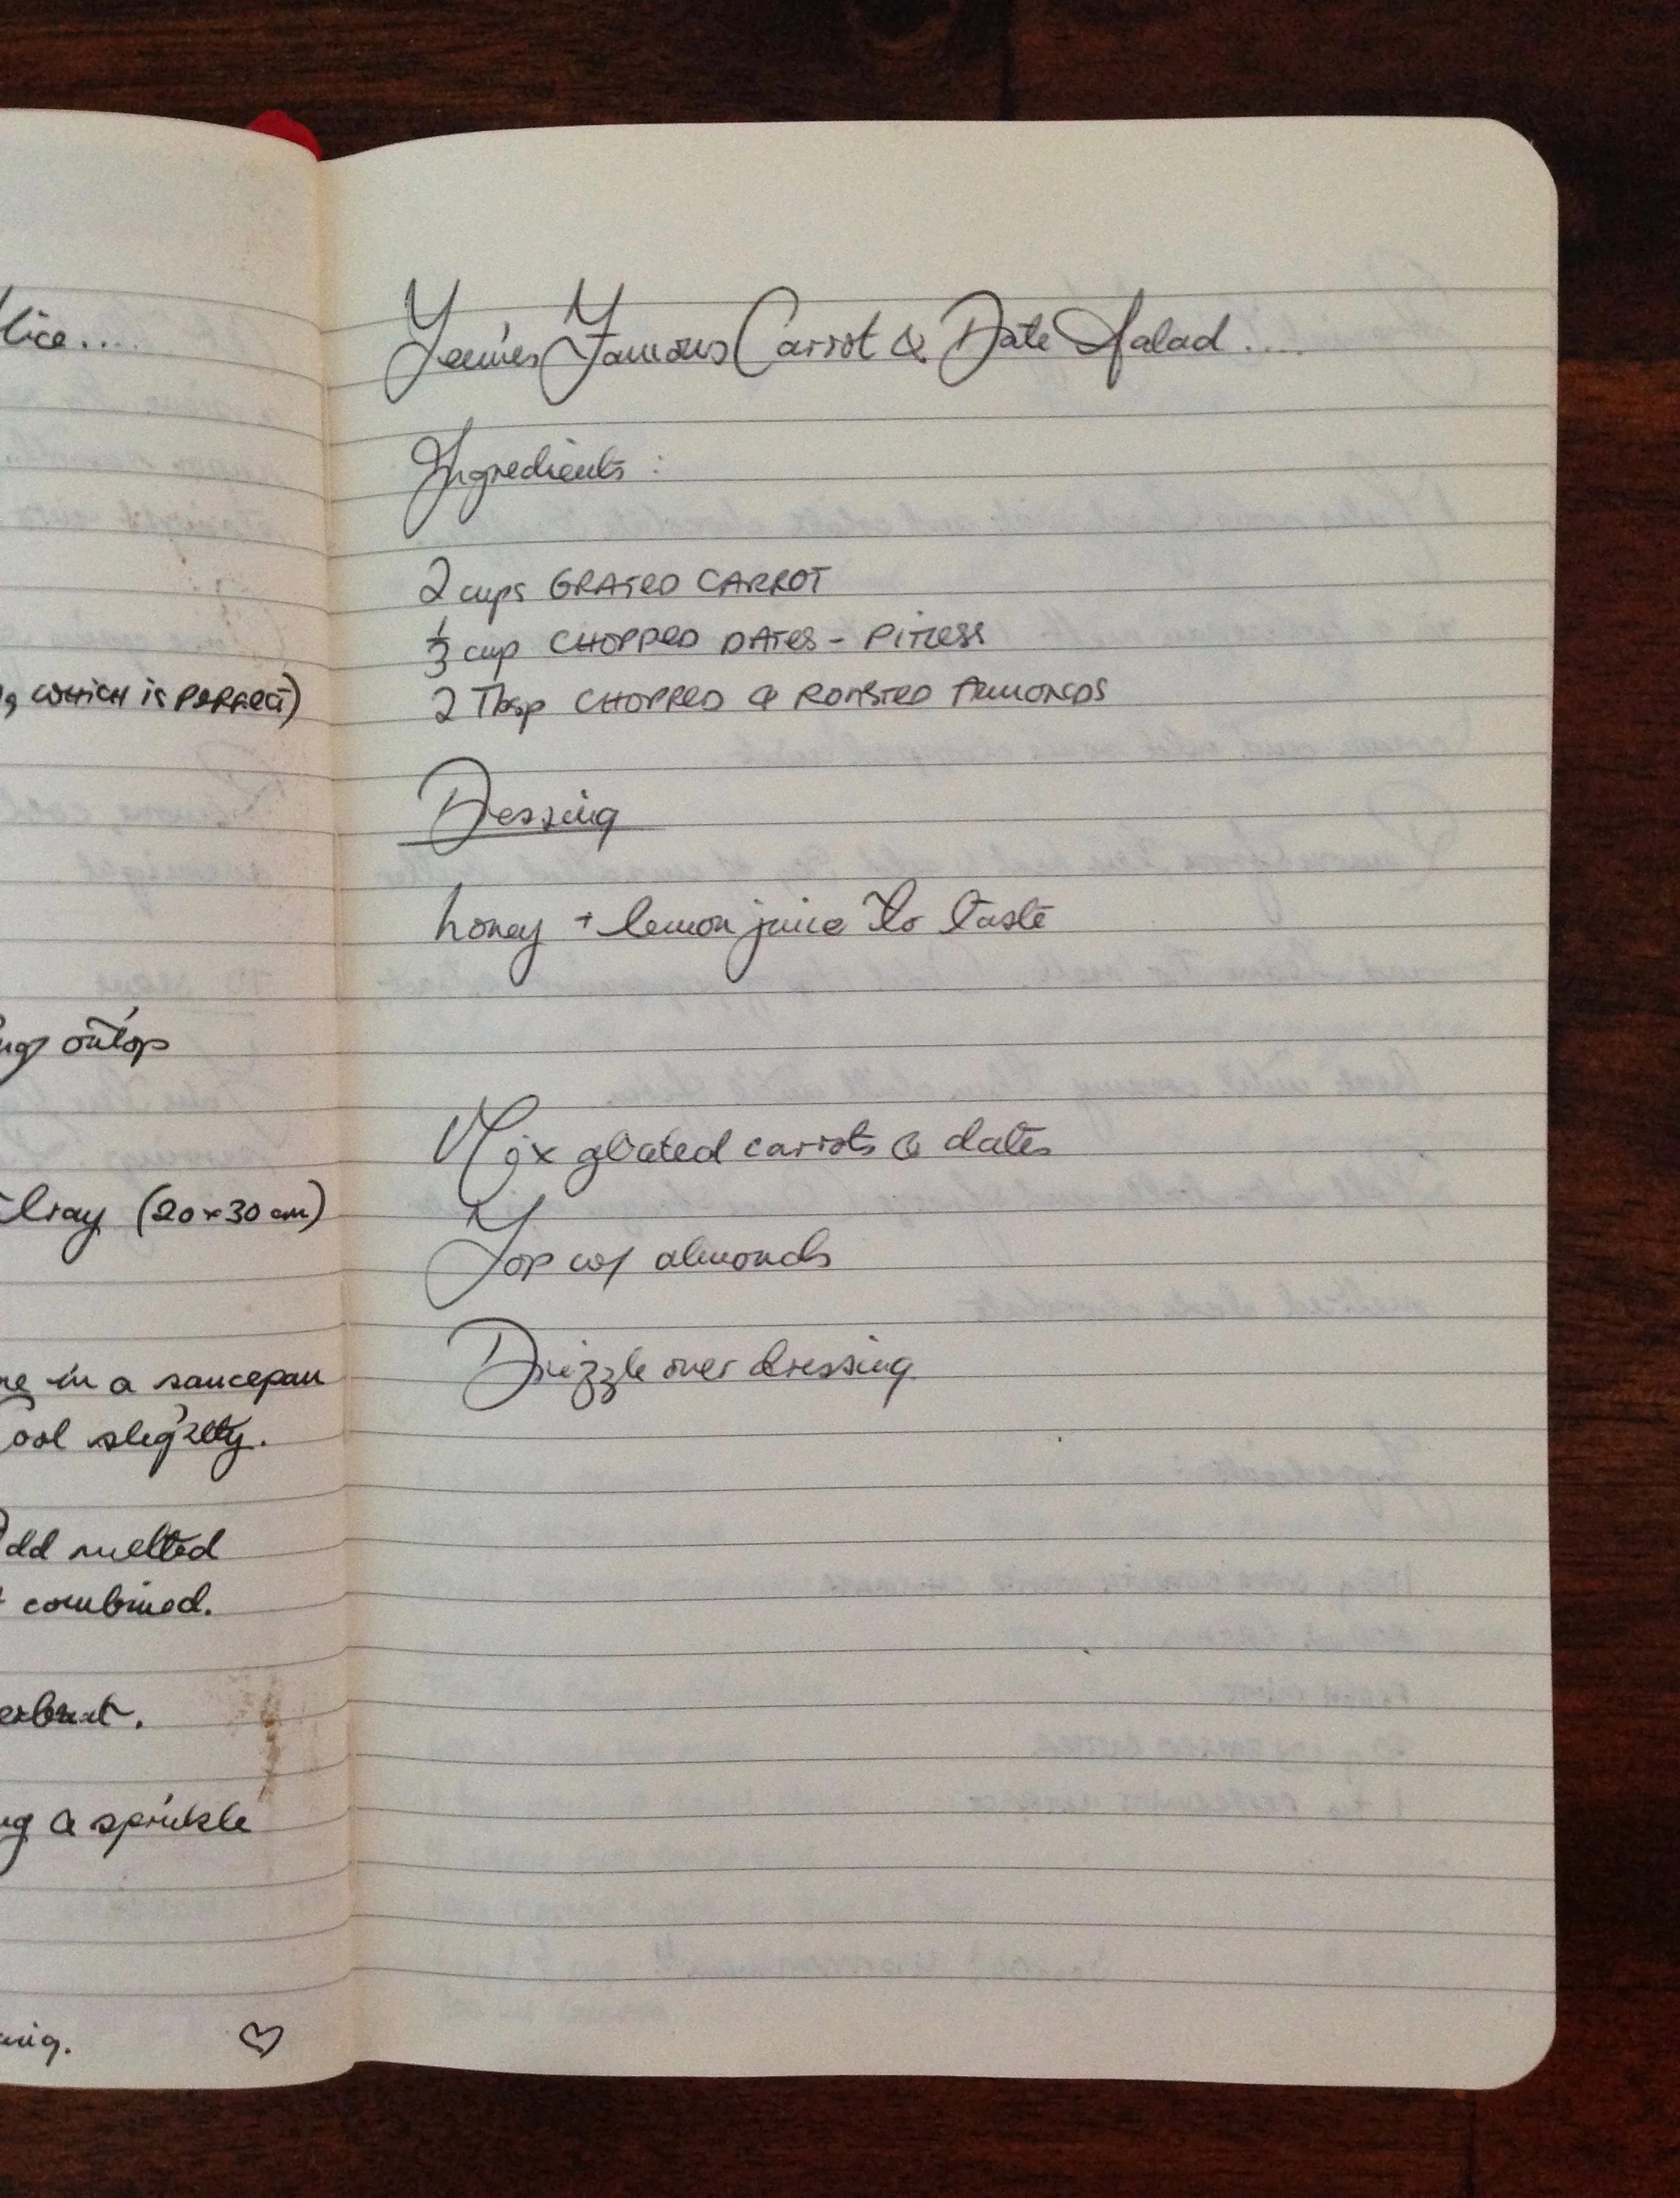 lice....
, which is perfect)
ng ontop
tray (20x30cm)
in a saucepan
ool slightly.
dd melted
combined.
ng & sprinkle
♡
Famous Carrot & Date Salad....
Ingredients :
2 cups GRATED CARROT
1/3 cup CHOPPED DATES - PITLESS
2 Tbsp CHOPPED & ROASTED ALMONDS
Dessing
honey + lemon juice to taste
Mix grated carrots & dates
Top w/ almonds
Drizzle over dressing.